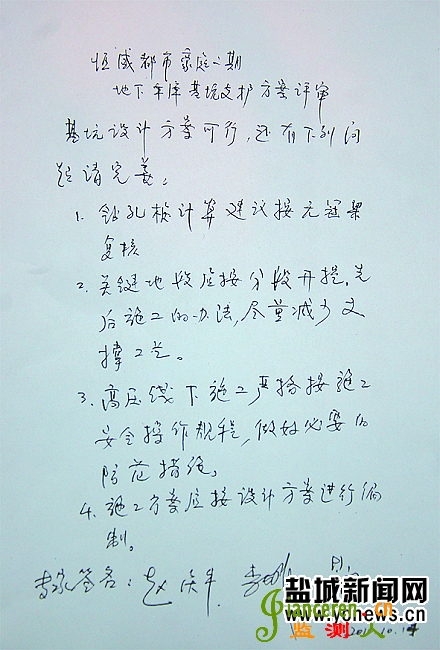 恒威都市家庭二期
地下车库基坑支护方案评审
基坑设计方案可行，还有下列问
题请完善：
1. 钻孔桩计算建议按无冠梁
复核
2. 关键地段应按分段开挖，先
后施工的办法，尽量减少支
撑工艺。
3. 高压线下施工严格按施工
安全操作规程，做好必要的
防范措施。
4. 施工方案应按设计方案进行编
制。
专家签名：
盐城新闻网
www.ycnews.cn
监测人